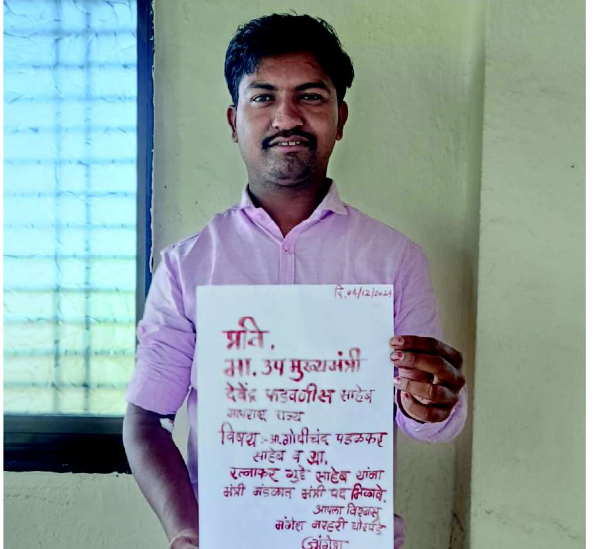 दि. 04/12/2024
प्रति,
मा. उप मुख्यमंत्री
देवेंद्र फडवणीस साहेब
महाराष्ट्र राज्य
विषय :- आ. गोपीचंद पडळकर
साहेब व आ.
रत्नाकर गुट्टे साहेब यांना
मंत्री मंडळात मंत्री पद मिळावे.
आपला विश्वासु
मंगेश नरहरी घोरपडे